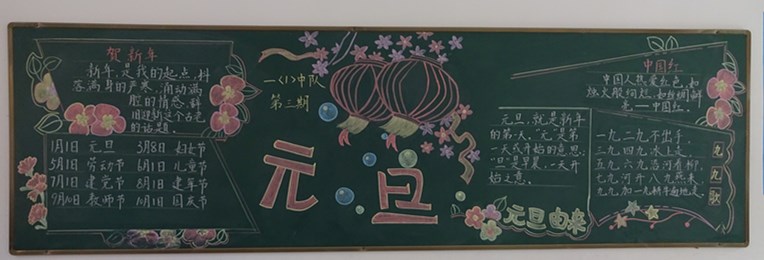 贺新年
新年,是我的起点,抖
落满身的严寒,涌动满
腔的情感,辞
旧迎新这个古老
的话题。
1月1日 元旦 3月8日 妇女节
5月1日 劳动节 6月1日 儿童节
7月1日 建党节 8月1日 建军节
9月10日 教师节 10月1日 国庆节
一〈1〉中队
第三期
元旦
中国红
中国人热爱红色,如
烛火般闪烁,如丝绸鲜
亮—中国红。
元旦,就是新年
的第一天。“元”是第
一天或开始的意思;
“旦”是早晨,一天开
始之意。
元旦由来
一九二九不出手,
三九四九冰上走,
五九六九沿河看柳,
七九河开八九燕来,
九九加一九耕牛遍地走。
九九歌